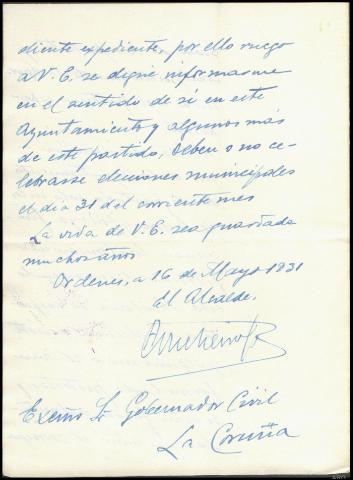 diente expediente, por ello ruego
a V. E. se digne informarme
en el sentido de si en este
Ayuntamiento y algunos mas
de este partido, deben o no ce-
lebrarse elecciones municipales
el dia 31 del corriente mes
La vida de V. E. sea guardada
muchos años
Ordenes, a 16 de Mayo 1931
El Alcalde.
Excmo Sr Gobernador Civil
La Coruña